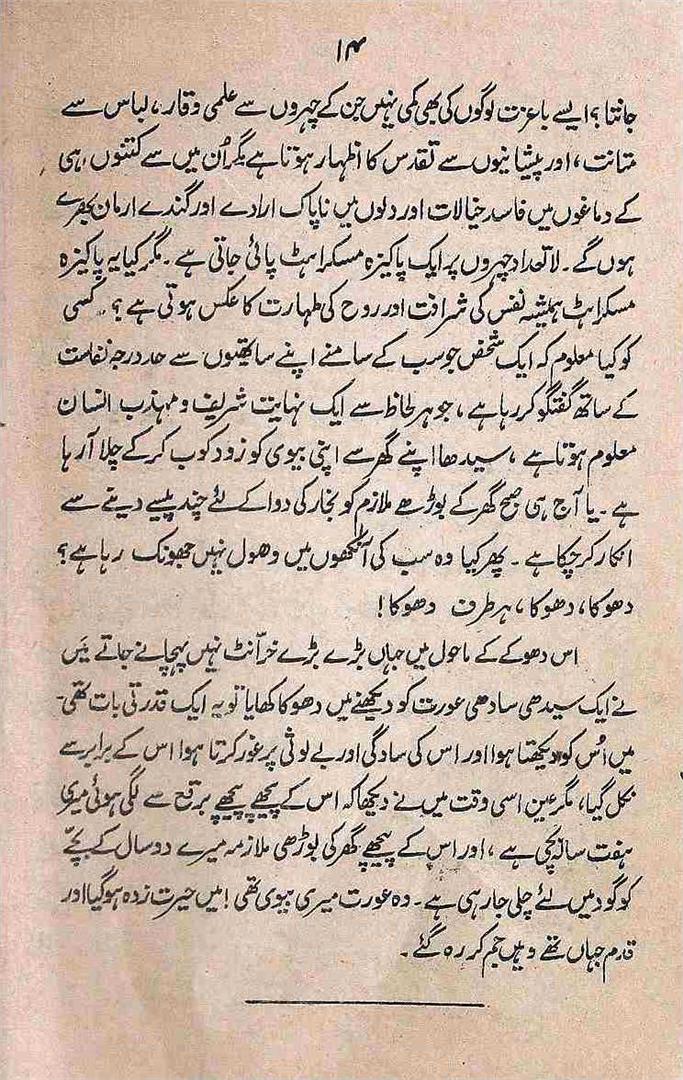 ۱۴
جانتا؟ ایسے باعزت لوگوں کی بھی کمی نہیں جن کے چہروں سے علمی وقار، لباس سے
متانت، اور پیشانیوں سے تقدس کا اظہار ہوتا ہے مگر اُن میں سے کتنوں ہی
کے دماغوں میں فاسد خیالات اور دلوں میں ناپاک ارادے اور گندے ارمان بھرے
ہوں گے۔ لاتعداد چہروں پر ایک پاکیزہ مسکراہٹ پائی جاتی ہے۔ مگر کیا یہ پاکیزہ
مسکراہٹ ہمیشہ نفس کی شرافت اور روح کی طہارت کا عکس ہوتی ہے؟ کسی
کو کیا معلوم کہ ایک شخص جو سب کے سامنے اپنے ساتھیوں سے حد درجہ نفاست
کے ساتھ گفتگو کر رہا ہے، جو ہر لحاظ سے ایک نہایت شریف و مہذب انسان
معلوم ہوتا ہے، سیدھا اپنے گھر سے اپنی بیوی کو زود کوب کر کے چلا آ رہا
ہے۔ یا آج ہی صبح گھر کے بوڑھے ملازم کو بخار کی دوا کے لئے چند پیسے دینے سے
انکار کر چکا ہے۔ پھر کیا وہ سب کی آنکھوں میں دھول نہیں جھونک رہا ہے؟
دھوکا، دھوکا، ہر طرف دھوکا!
اس دھوکے کے ماحول میں جہاں بڑے بڑے خرّانٹ نہیں پہچانے جاتے میں
نے ایک سیدھی سادھی عورت کو دیکھنے میں دھوکا کھایا تو یہ ایک قدرتی بات تھی۔
میں اُس کو دیکھتا ہوا اور اس کی سادگی اور بے لوثی پر غور کرتا ہوا اس کے برابر سے
نکل گیا، مگر عین اسی وقت میں نے دیکھا کہ اس کے پیچھے پیچھے برقع سے لگی ہوئی میری
ہفت سالہ بچی ہے، اور اس کے پیچھے گھر کی بوڑھی ملازمہ میرے دو سال کے بچّے
کو گود میں لئے چلی جا رہی ہے۔ وہ عورت میری بیوی تھی! میں حیرت زدہ ہو گیا اور
قدم جہاں تھے وہیں جم کر رہ گئے۔